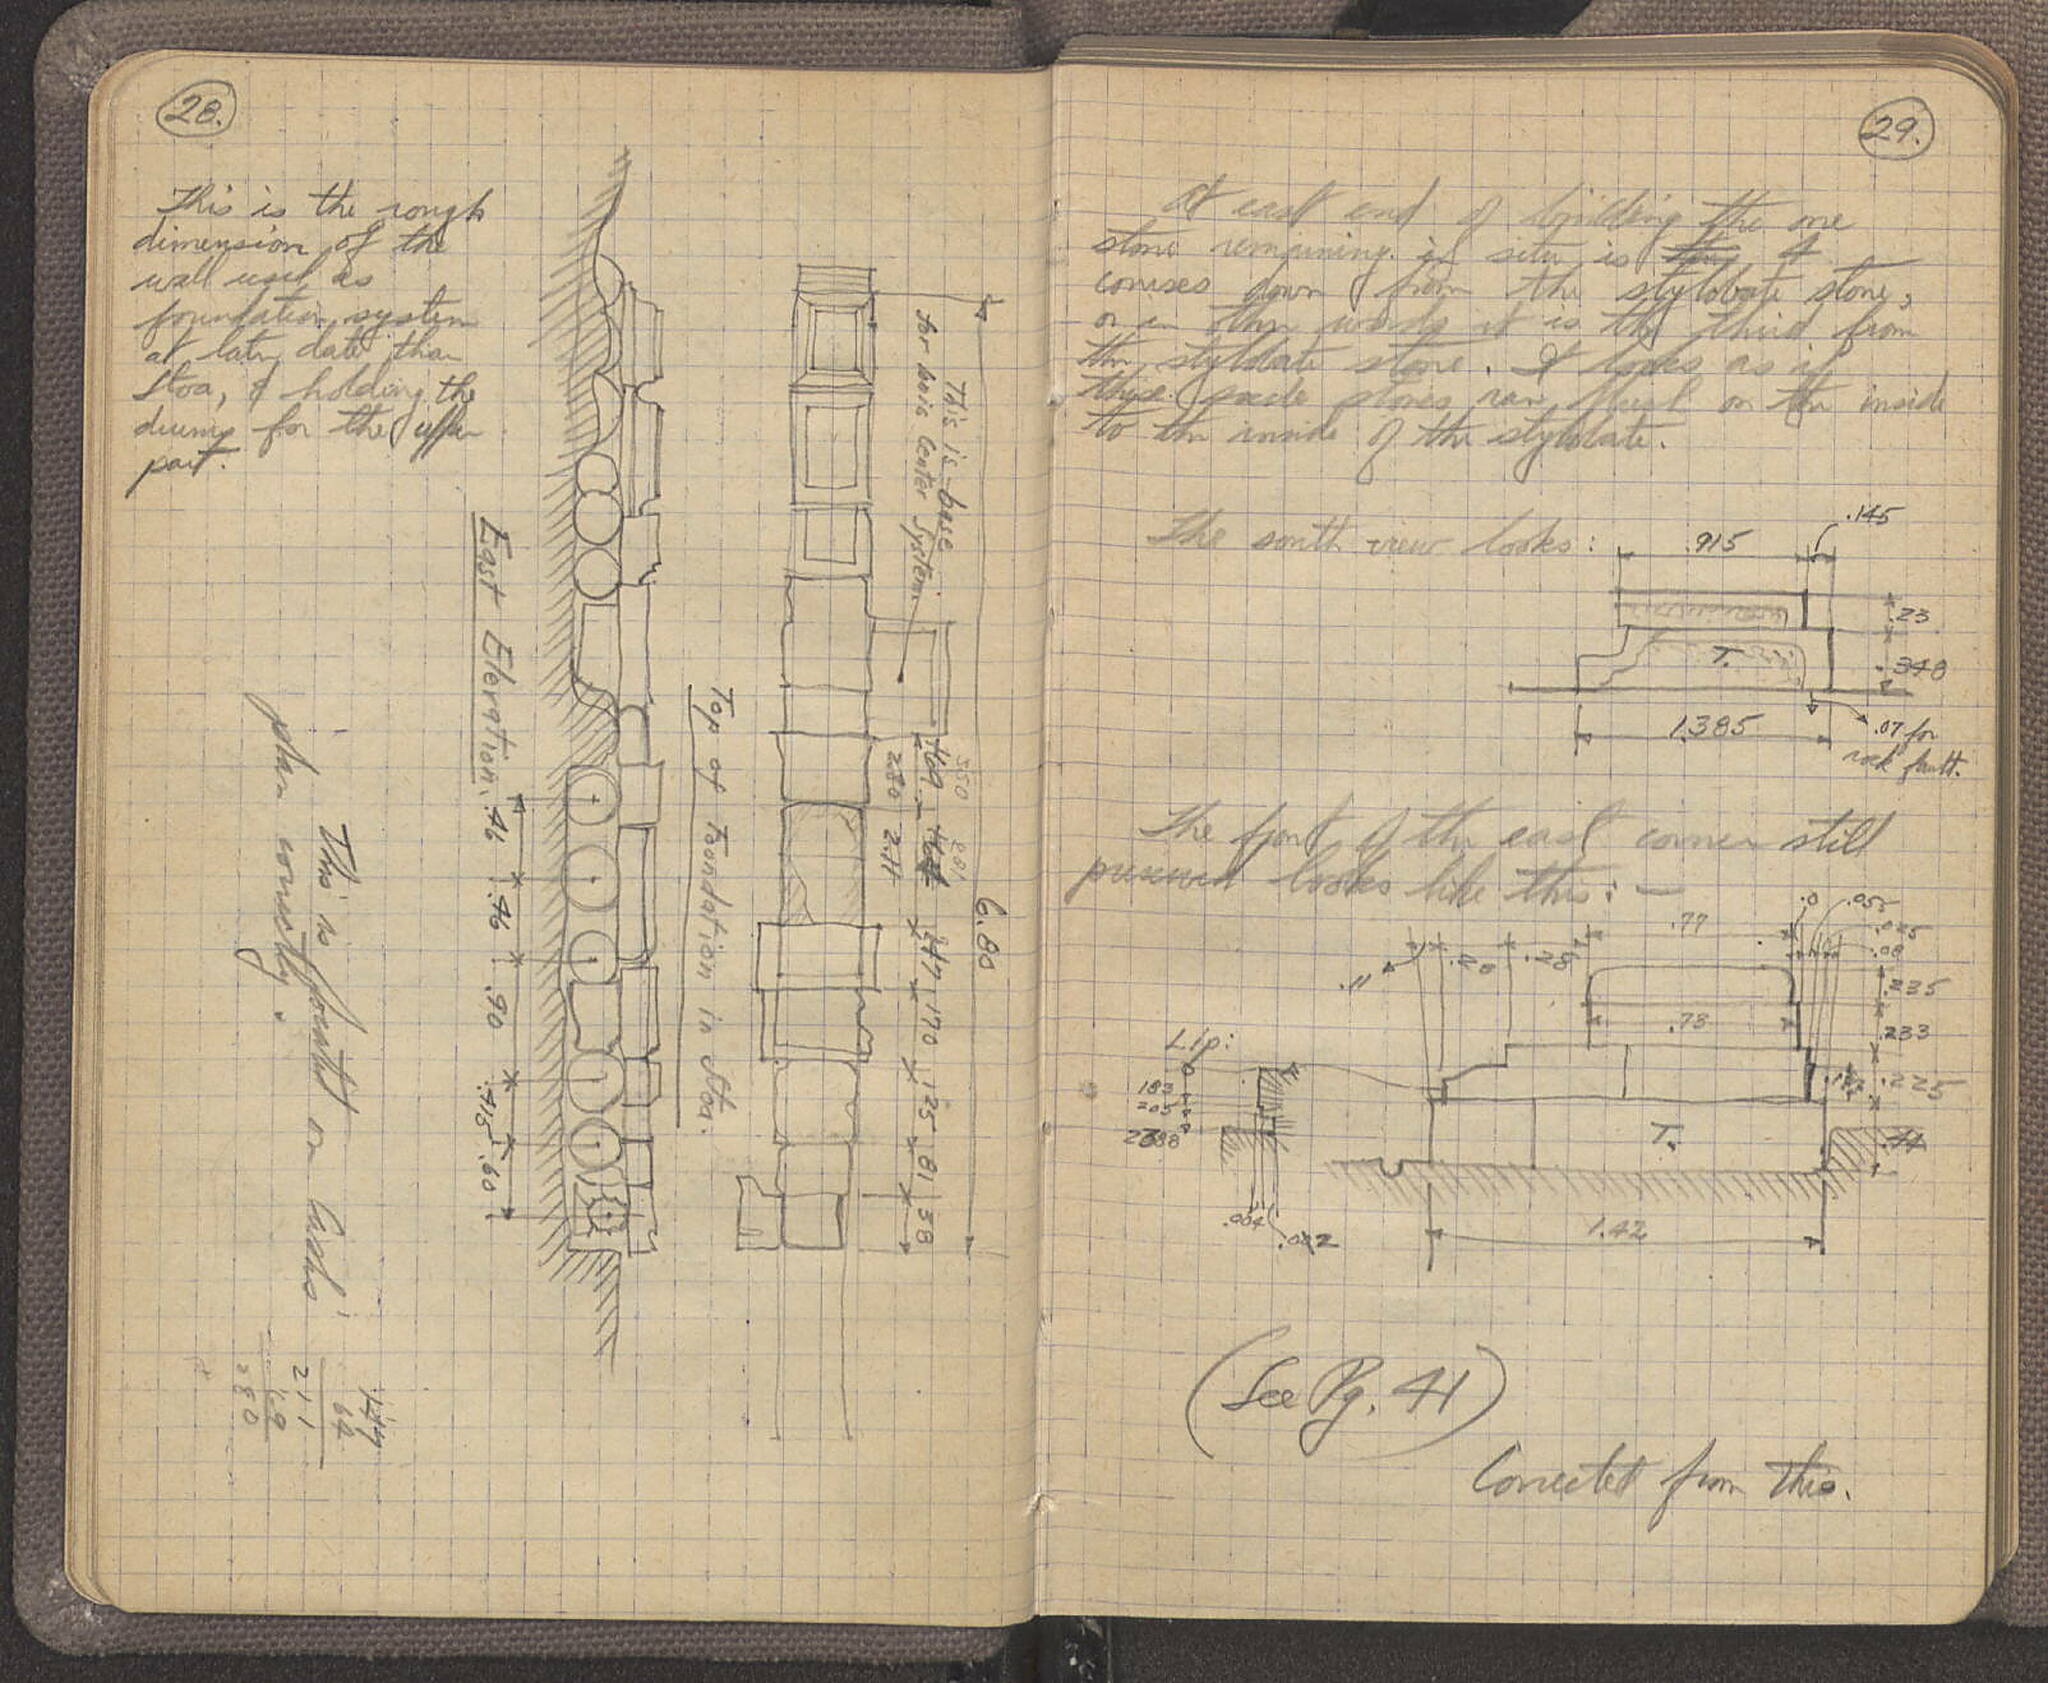 28.
This is the rough
dimension of the
wall used as
foundation system
at later date than
Stoa, & holding the
drums for the upper
part.
East Elevation.
.46
.46
.90
.415
.60
Top of Foundation in Stoa.
This is base
for bois Center System.
6.80
550
281
169
280
2.11
147
170
125
81
38
This is
on
plan correctly.
164
64
211
69
280
29.
At east end of building the one
stone remaining in situ is 4
courses down from the stylobate stone,
or in other words it is the third from
the stylobate stone. It looks as if
these stones ran flush on the inside
to the inside of the stylobate.
The south view looks:
.915
.145
.23
.340
T.
1.385
.07 for
rock fault.
The front of the east corner still
preserved looks like this: —
.77
.0
.055
.025
.08
.11
.20
.28
.235
.73
.233
.225
Lip:
0
183
205
T.
.44
1.42
.004
.002
(See Pg. 41)
Corrected from this.